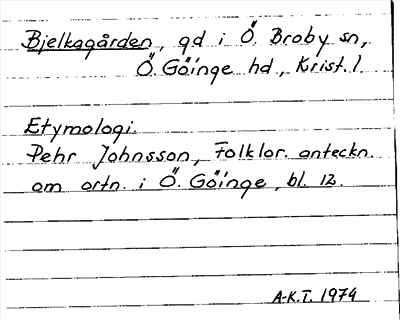 Bjelkagården, gd i Ö. Broby sn,
Ö. Göinge hd, Krist. l.
Etymologi.
Pehr Johnsson, Folklor. anteckn.
om ortn. i Ö. Göinge, bl. 12.
A-K.T. 1974